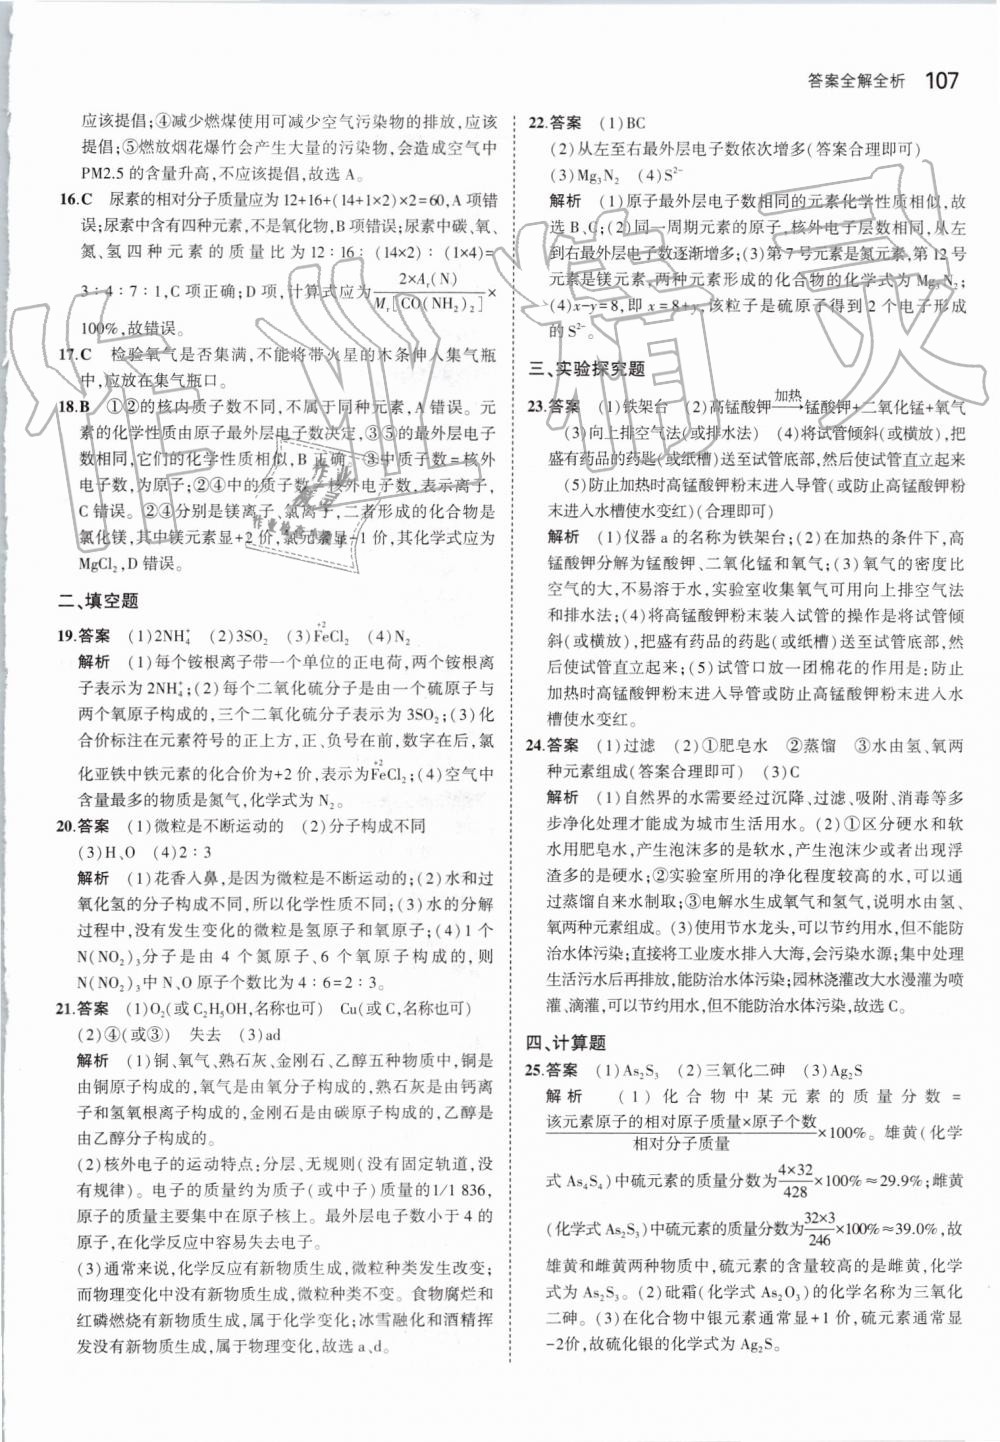 答案全解全析 107
应该提倡;④减少燃煤使用可减少空气污染物的排放,应该
提倡;⑤燃放烟花爆竹会产生大量的污染物,会造成空气中
PM2.5 的含量升高,不应该提倡,故选 A。
16.C 尿素的相对分子质量应为 12+16+(14+1×2)×2=60,A 项错
误;尿素中含有四种元素,不是氧化物,B 项错误;尿素中碳、氧、
氮、氢四种元素的质量比为 12:16:(14×2):(1×4)=
3:4:7:1,C 项正确;D 项,计算式应为 2×Ar(N)/Mr[CO(NH2)2]×
100%,故错误。
17.C 检验氧气是否集满,不能将带火星的木条伸入集气瓶
中,应放在集气瓶口。
18.B ①②的核内质子数不同,不属于同种元素,A 错误。元
素的化学性质由原子最外层电子数决定,③⑤的最外层电子
数相同,它们的化学性质相似,B 正确。③中质子数=核外
电子数,为原子;②④中的质子数≠核外电子数,表示离子,
C 错误。②④分别是镁离子、氯离子,二者形成的化合物是
氯化镁,其中镁元素显+2 价,氯元素显-1 价,其化学式应为
MgCl2,D 错误。
二、填空题
19.答案 (1)2NH4+ (2)3SO2 (3)Fe(+2)Cl2 (4)N2
解析 (1)每个铵根离子带一个单位的正电荷,两个铵根离
子表示为 2NH4+;(2)每个二氧化硫分子是由一个硫原子与
两个氧原子构成的,三个二氧化硫分子表示为 3SO2;(3)化
合价标注在元素符号的正上方,正、负号在前,数字在后,氯
化亚铁中铁元素的化合价为+2 价,表示为Fe(+2)Cl2;(4)空气中
含量最多的物质是氮气,化学式为 N2。
20.答案 (1)微粒是不断运动的 (2)分子构成不同
(3)H、O (4)2:3
解析 (1)花香入鼻,是因为微粒是不断运动的;(2)水和过
氧化氢的分子构成不同,所以化学性质不同;(3)水的分解
过程中,没有发生变化的微粒是氢原子和氧原子;(4)1 个
N(NO2)3分子是由 4 个氮原子、6 个氧原子构成的,则
N(NO2)3中 N、O 原子个数比为 4:6=2:3。
21.答案 (1)O2(或 C2H5OH,名称也可) Cu(或 C,名称也可)
(2)④(或③) 失去 (3)ad
解析 (1)铜、氧气、熟石灰、金刚石、乙醇五种物质中,铜是
由铜原子构成的,氧气是由氧分子构成的,熟石灰是由钙离
子和氢氧根离子构成的,金刚石是由碳原子构成的,乙醇是
由乙醇分子构成的。
(2)核外电子的运动特点:分层、无规则(没有固定轨道,没
有规律)。电子的质量约为质子(或中子)质量的1/1 836,
原子的质量主要集中在原子核上。最外层电子数小于 4 的
原子,在化学反应中容易失去电子。
(3)通常来说,化学反应有新物质生成,微粒种类发生改变;
而物理变化中没有新物质生成,微粒种类不变。食物腐烂和
红磷燃烧有新物质生成,属于化学变化;冰雪融化和酒精挥
发没有新物质生成,属于物理变化,故选 a、d。
22.答案 (1)BC
(2)从左至右最外层电子数依次增多(答案合理即可)
(3)Mg3N2 (4)S2-
解析 (1)原子最外层电子数相同的元素化学性质相似,故
选 B、C;(2)同一周期元素的原子,核外电子层数相同,从左
到右最外层电子数逐渐增多;(3)第 7 号元素是氮元素,第 12 号
元素是镁元素,两种元素形成的化合物的化学式为 Mg3N2;
(4)x-y=8,即 x=8+y,该粒子是硫原子得到 2 个电子形成
的 S2-。
三、实验探究题
23.答案 (1)铁架台 (2)高锰酸钾—加热→锰酸钾+二氧化锰+氧气
(3)向上排空气法(或排水法) (4)将试管倾斜(或横放),把
盛有药品的药匙(或纸槽)送至试管底部,然后使试管直立起来
(5)防止加热时高锰酸钾粉末进入导管(或防止高锰酸钾粉
末进入水槽使水变红)(合理即可)
解析 (1)仪器 a 的名称为铁架台;(2)在加热的条件下,高
锰酸钾分解为锰酸钾、二氧化锰和氧气;(3)氧气的密度比
空气的大,不易溶于水,实验室收集氧气可用向上排空气法
和排水法;(4)将高锰酸钾粉末装入试管的操作是将试管倾
斜(或横放),把盛有药品的药匙(或纸槽)送至试管底部,然
后使试管直立起来;(5)试管口放一团棉花的作用是:防止
加热时高锰酸钾粉末进入导管或防止高锰酸钾粉末进入水
槽使水变红。
24.答案 (1)过滤 (2)①肥皂水 ②蒸馏 ③水由氢、氧两
种元素组成(答案合理即可) (3)C
解析 (1)自然界的水需要经过沉降、过滤、吸附、消毒等多
步净化处理才能成为城市生活用水。(2)①区分硬水和软
水用肥皂水,产生泡沫多的是软水,产生泡沫少或者出现浮
渣多的是硬水;②实验室所用的净化程度较高的水,可通过
过蒸馏自来水制取;③电解水生成氧气和氢气,说明水由氢、
氧两种元素组成。(3)使用节水龙头,可以节约用水,但不能防
治水体污染;直接将工业废水排入大海,会污染水源;集中处理
生活污水后再排放,能防治水体污染;园林浇灌改大水漫灌为喷
灌、滴灌,可以节约用水,但不能防治水体污染,故选 C。
四、计算题
25.答案 (1)As2S3 (2)三氧化二砷 (3)Ag2S
解析 (1)化合物中某元素的质量分数=
该元素的相对原子质量×原子个数/相对分子质量×100%。雄黄(化学
式 As4S4)中硫元素的质量分数为4×32/428×100%≈29.9%;雌黄
(化学式 As2S3)中硫元素的质量分数为32×3/246×100%≈39.0%,故
雄黄和雌黄两种物质中,硫元素的含量较高的是雌黄,化学
式为 As2S3。(2)砒霜(化学式 As2O3)的化学名称为三氧化
二砷。(3)在化合物中银元素通常显+1 价,硫元素通常显
-2价,故硫化银的化学式为 Ag2S。
作业精灵
作业精灵